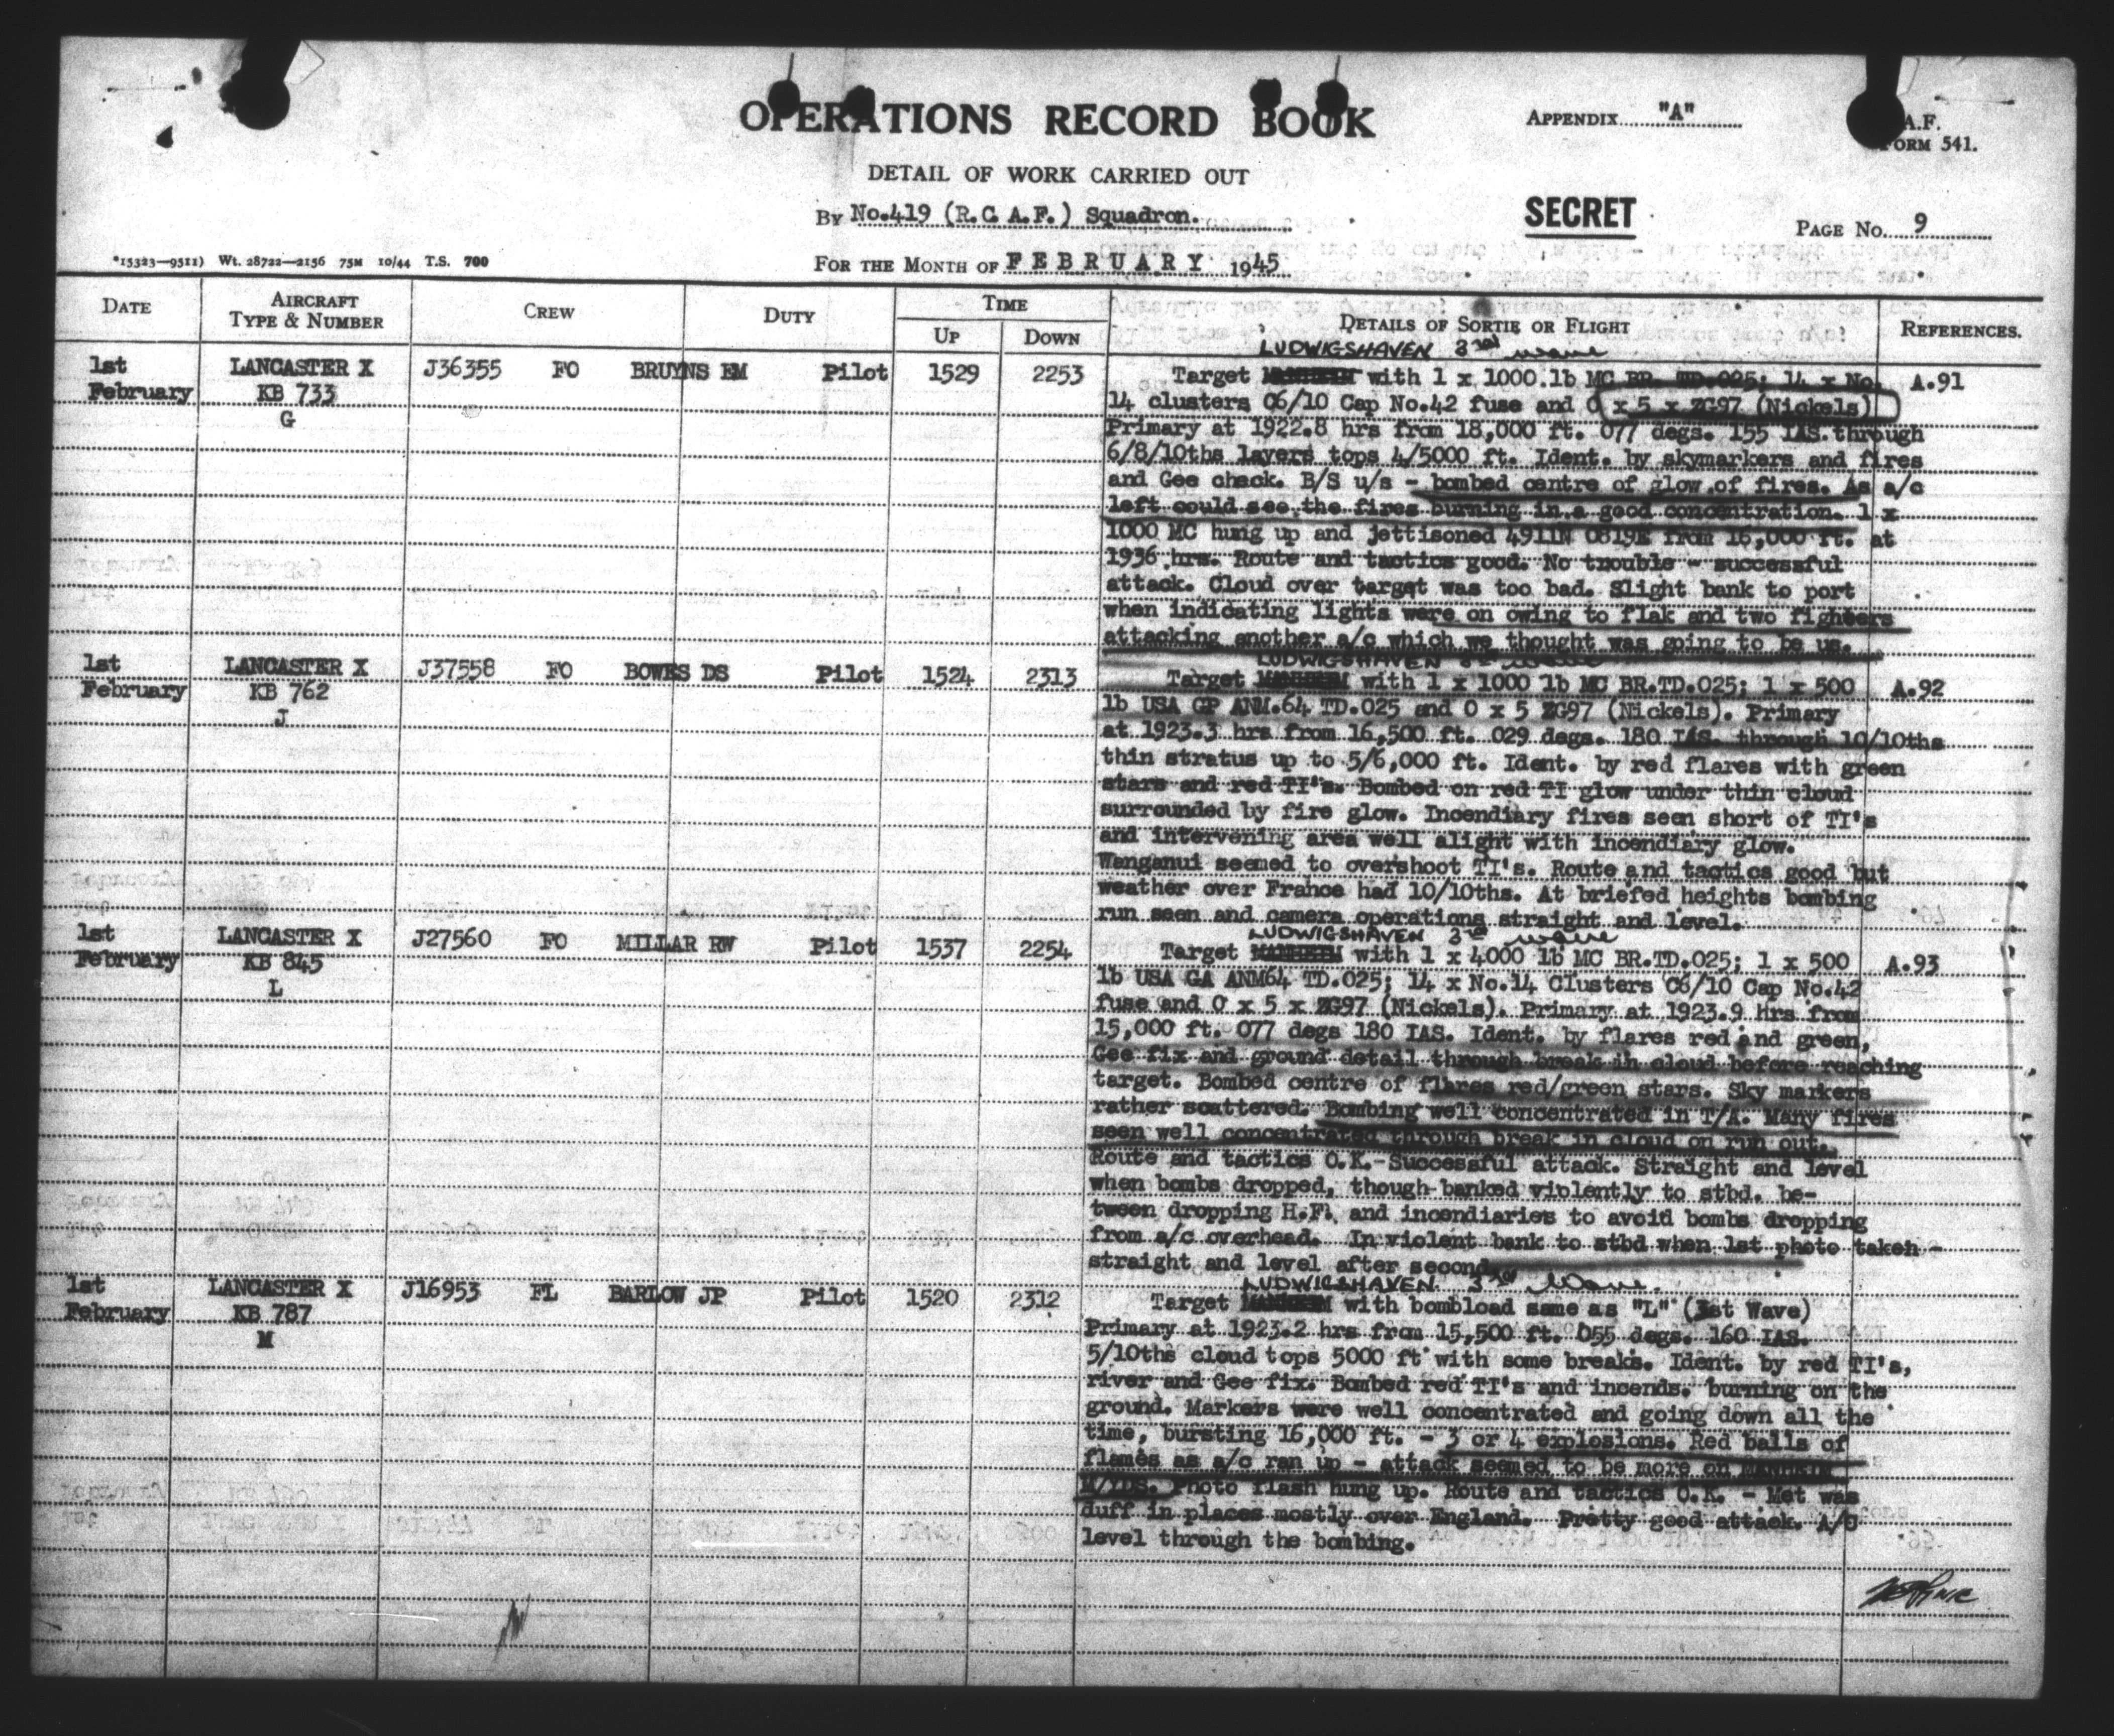 OPERATIONS RECORD BOOK
APPENDIX "A"
A.F.
FORM 541.
DETAIL OF WORK CARRIED OUT
By No.419 (R.C.A.F.) Squadron.
SECRET
PAGE No. 9
*15323—9511) Wt. 28722—2156 75M 10/44 T.S. 700
FOR THE MONTH OF FEBRUARY 1945
DATE
AIRCRAFT TYPE & NUMBER
CREW
DUTY
TIME
UP
DOWN
DETAILS OF SORTIE OR FLIGHT
REFERENCES.
LUDWIGSHAVEN 3rd wave
1st LANCASTER X J36355 FO BRUYNS EM Pilot 1529 2253 Target with 1 x 1000.lb MC BR. TD.025; 14 x No. A.91
February KB 733 14 clusters C6/10 Cap No.42 fuse and 0 x 5 x ZG97 (Nickels)
G Primary at 1922.8 hrs from 18,000 ft. 077 degs. 155 IAS. through
6/8/10ths layers tops 4/5000 ft. Ident. by skymarkers and fires
and Gee check. B/S u/s - bombed centre of glow of fires. As a/c
left could see the fires burning in a good concentration. 1 x
1000 MC hung up and jettisoned 4911N 0819E from 16,000 ft. at
1936 hrs. Route and tactics good. No trouble - successful
attack. Cloud over target was too bad. Slight bank to port
when indicating lights were on owing to flak and two fighters
attacking another a/c which we thought was going to be us.
LUDWIGSHAVEN wave
1st LANCASTER X J37558 FO BOWES DS Pilot 1524 2313 Target with 1 x 1000 lb MC BR.TD.025; 1 x 500 A.92
February KB 762 lb USA GP ANM.64 TD.025 and 0 x 5 ZG97 (Nickels). Primary
J at 1923.3 hrs from 16,500 ft. 029 degs. 180 IAS. through 10/10ths
thin stratus up to 5/6,000 ft. Ident. by red flares with green
stars and red TI's. Bombed on red TI glow under thin cloud
surrounded by fire glow. Incendiary fires seen short of TI's
and intervening area well alight with incendiary glow.
Wanganui seemed to overshoot TI's. Route and tactics good but
weather over France had 10/10ths. At briefed heights bombing
run seen and camera operations straight and level.
LUDWIGSHAVEN 3rd wave
1st LANCASTER X J27560 FO MILLAR RW Pilot 1537 2254 Target with 1 x 4000 lb MC BR.TD.025; 1 x 500 A.93
February KB 845 lb USA GA ANM64 TD.025; 14 x No.14 Clusters C6/10 Cap No.42
L fuse and 0 x 5 x ZG97 (Nickels). Primary at 1923.9 hrs from
15,000 ft. 077 degs 180 IAS. Ident. by flares red and green,
Gee fix and ground detail through break in cloud before reaching
target. Bombed centre of flares red/green stars. Sky markers
rather scattered. Bombing well concentrated in T/A. Many fires
seen well concentrated through break in cloud on run out.
Route and tactics O.K.-Successful attack. Straight and level
when bombs dropped, though banked violently to stbd. be-
tween dropping H.F. and incendiaries to avoid bombs dropping
from a/c overhead. In violent bank to stbd when 1st photo taken -
straight and level after second.
LUDWIGSHAVEN 3rd Wave.
1st LANCASTER X J16953 FL BARLOW JP Pilot 1520 2312 Target with bombload same as "L" (3st Wave)
February KB 787 Primary at 1923.2 hrs from 15,500 ft. 055 degs. 160 IAS.
M 5/10ths cloud tops 5000 ft with some breaks. Ident. by red TI's,
river and Gee fix. Bombed red TI's and incends. burning on the
ground. Markers were well concentrated and going down all the
time, bursting 16,000 ft. - 3 or 4 explosions. Red balls of
flames as a/c ran up - attack seemed to be more on MANHEIM
M/YDS. Photo flash hung up. Route and tactics O.K. - Met was
duff in places mostly over England. Pretty good attack. A/C
level through the bombing.